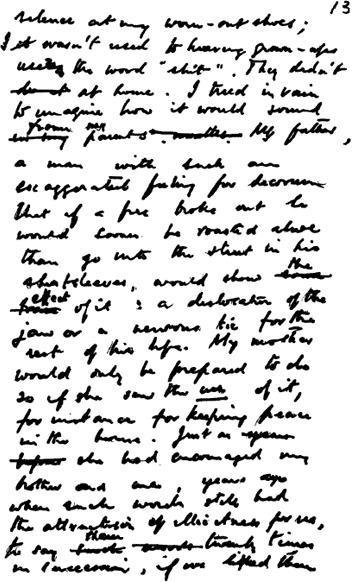 13
silence at my worn-out shoes;
I wasn't used to hearing grown-ups
using the word "shit". They didn't
at home. I tried in vain
to imagine how it would sound
from my parents. My father,
a man with such an
exaggerated feeling for decorum
that if a fire broke out he
would sooner be roasted alive
than go into the street in his
shirtsleeves, would show the
effect of it: a dislocation of the
jaw or a nervous tic for the
rest of his life. My mother
would only be prepared to do
so if she saw the use of it,
for instance for keeping peace
in the home. Just as
she had encouraged my
brother and me, years ago
when such words still had
the attraction of illicitness for us,
to say them twenty times
in succession, if we liked them